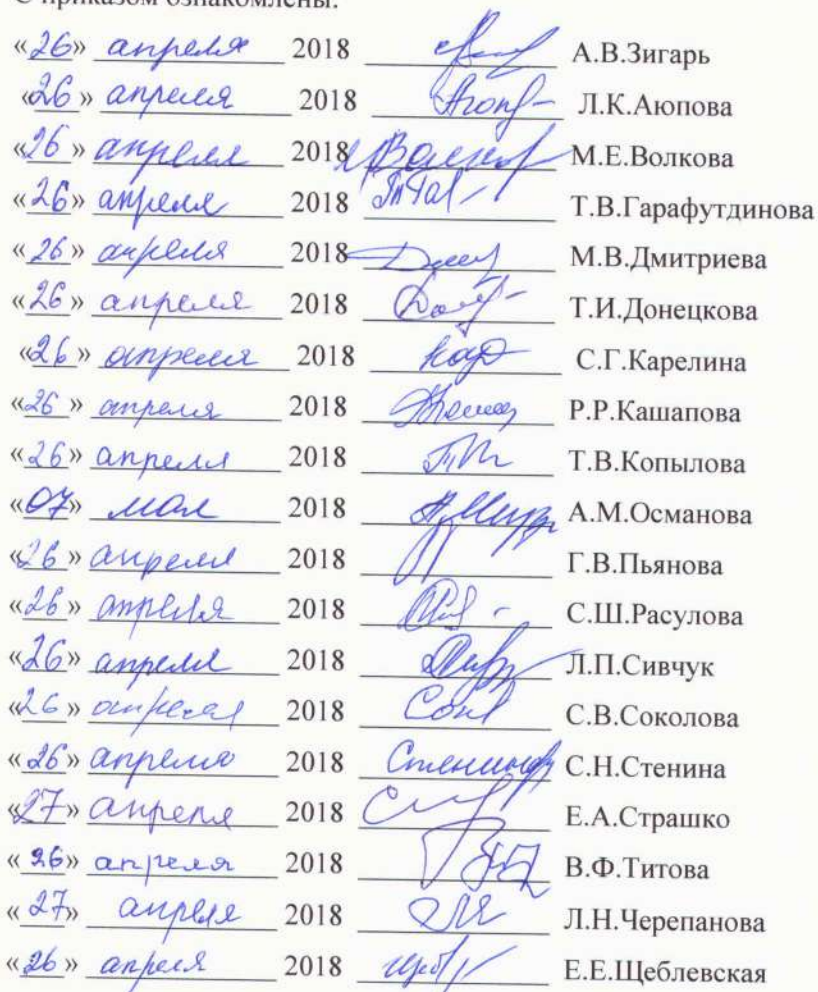 С приказом ознакомлены:
«26» апреля 2018 А.В.Зигарь
«26» апреля 2018 Л.К.Аюпова
«26» апреля 2018 М.Е.Волкова
«26» апреля 2018 Т.В.Гарафутдинова
«26» апреля 2018 М.В.Дмитриева
«26» апреля 2018 Т.И.Донецкова
«26» апреля 2018 С.Г.Карелина
«26» апреля 2018 Р.Р.Кашапова
«26» апреля 2018 Т.В.Копылова
«07» мая 2018 А.М.Османова
«26» апреля 2018 Г.В.Пьянова
«26» апреля 2018 С.Ш.Расулова
«26» апреля 2018 Л.П.Сивчук
«26» апреля 2018 С.В.Соколова
«26» апреля 2018 С.Н.Стенина
«27» апреля 2018 Е.А.Страшко
«26» апреля 2018 В.Ф.Титова
«27» апреля 2018 Л.Н.Черепанова
«26» апреля 2018 Е.Е.Щеблевская